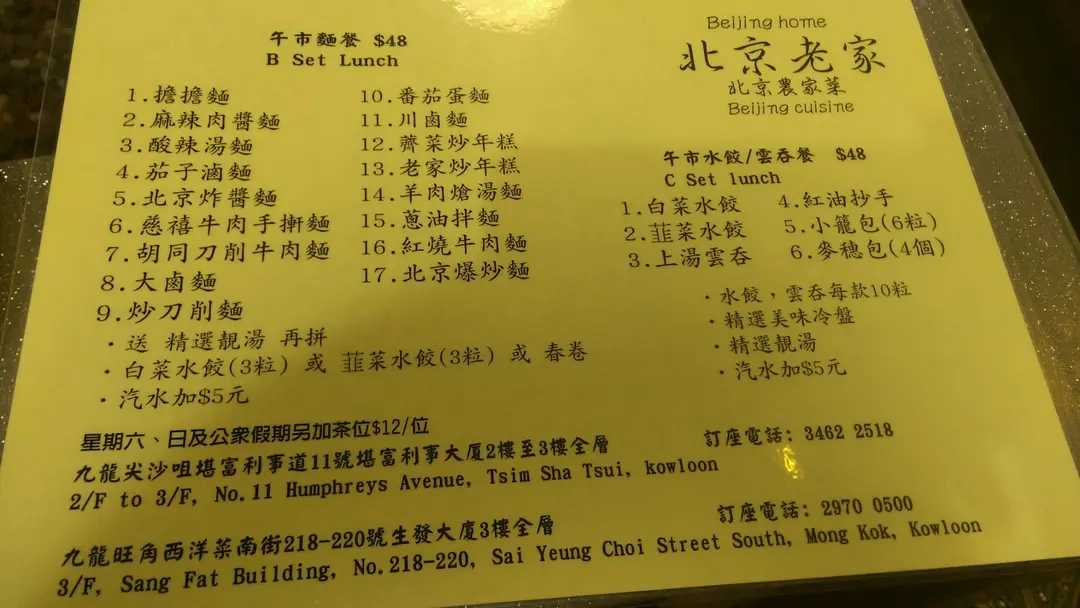 午市麵餐 $48
B Set Lunch
1.擔擔麵
2.麻辣肉醬麵
3.酸辣湯麵
4.茄子滷麵
5.北京炸醬麵
6.慈禧牛肉手擀麵
7.胡同刀削牛肉麵
8.大鹵麵
9.炒刀削麵
10.番茄蛋麵
11.川鹵麵
12.薺菜炒年糕
13.老家炒年糕
14.羊肉熗湯麵
15.蔥油拌麵
16.紅燒牛肉麵
17.北京爆炒麵
・送 精選靚湯 再拼
・白菜水餃(3粒) 或 韮菜水餃(3粒) 或 春卷
・汽水加$5元
Beijing home
北京老家
北京農家菜
Beijing cuisine
午市水餃/雲吞餐 $48
C Set lunch
1.白菜水餃
2.韮菜水餃
3.上湯雲吞
4.紅油抄手
5.小籠包(6粒)
6.麥穗包(4個)
・水餃，雲吞每款10粒
・精選美味冷盤
・精選靚湯
・汽水加$5元
星期六、日及公眾假期另加茶位$12/位
九龍尖沙咀堪富利事道11號堪富利事大厦2樓至3樓全層
訂座電話: 3462 2518
2/F to 3/F, No.11 Humphreys Avenue, Tsim Sha Tsui, kowloon
九龍旺角西洋菜南街218-220號生發大廈3樓全層
訂座電話: 2970 0500
3/F, Sang Fat Building, No.218-220, Sai Yeung Choi Street South, Mong Kok, Kowloon